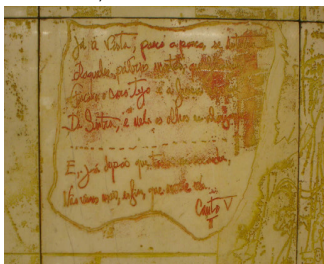 Já a vista, pouco a pouco, se desterra
Daqueles pátrios montes, que
Ficava o caro Tejo e a fresca
De Sintra, e nela os olhos se alongavam
E, já depois que toda se escondeu,
Não vimos mais, enfim, que mar e
Canto V